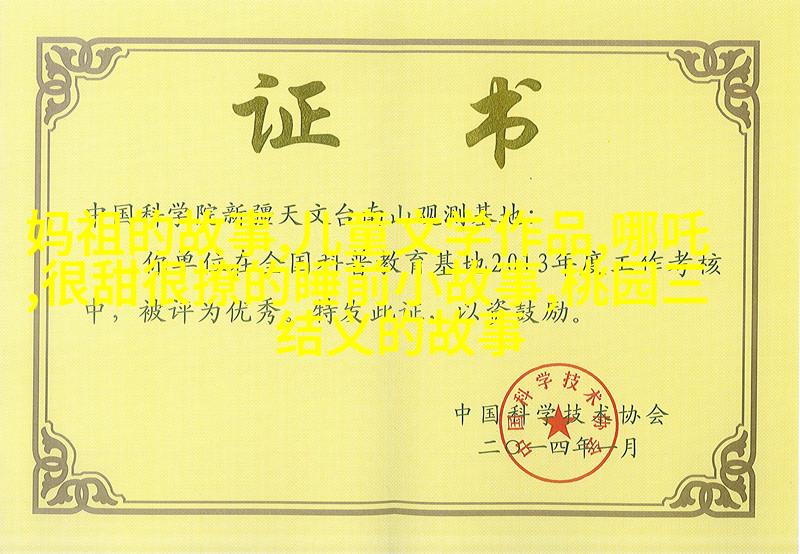 证 书
中国科学院新疆天文台南山观测基地:
妈祖的故事,儿童文学作品,哪吒
你单位在全国科普教育基地2013年度工作考核
,很甜很撩的睡前小故事,桃园三
中，被评为优秀。特发此证，以资鼓励。
结义的故事
中国科学技术协会
二〇一四年一月
中国科学技术协会